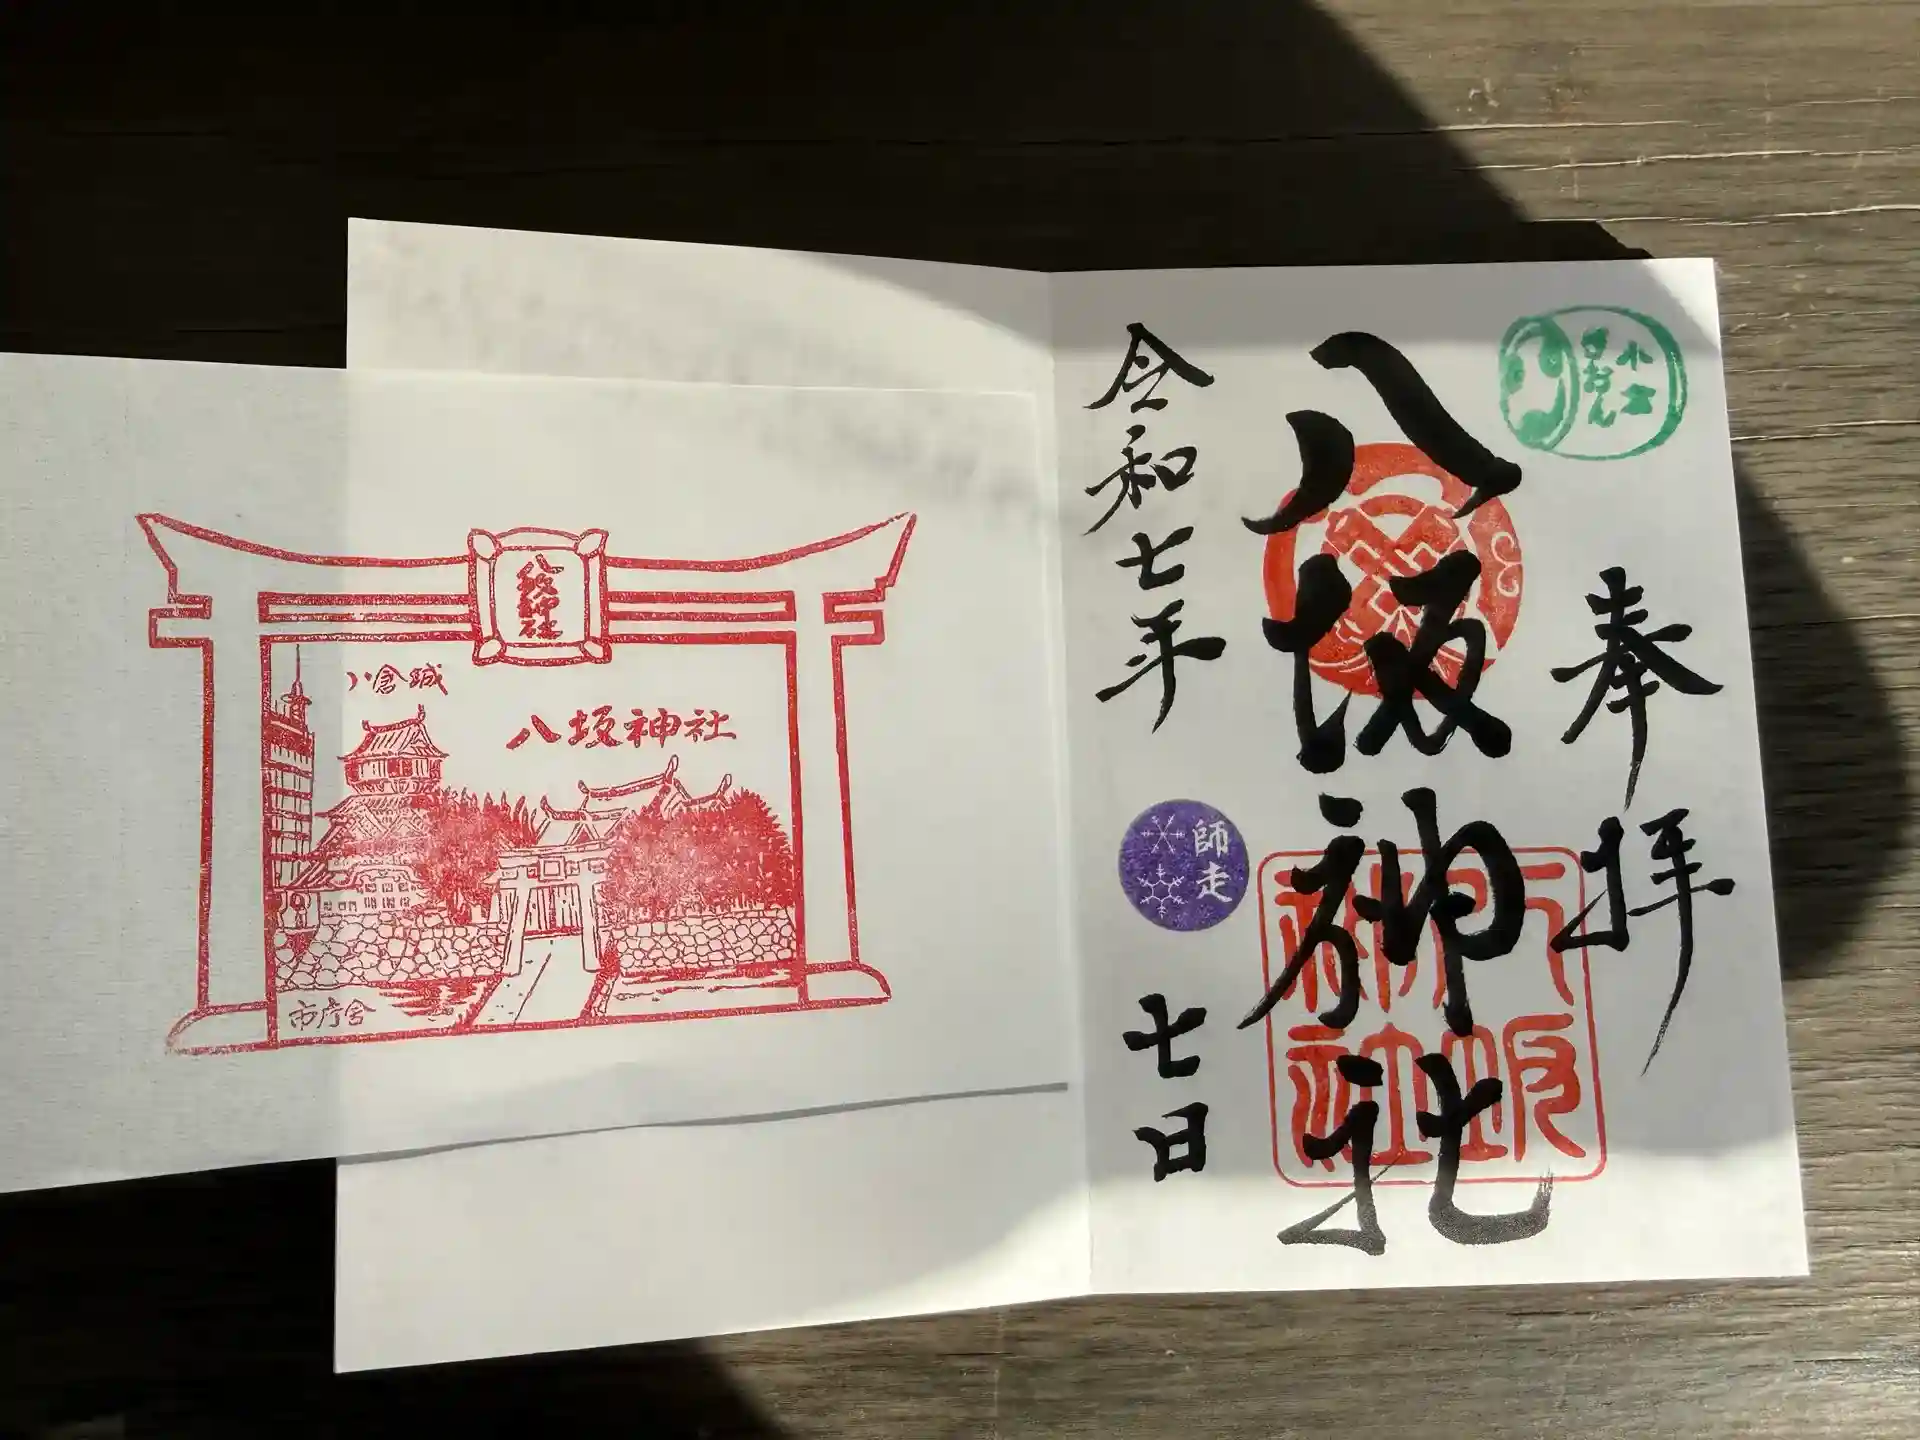 八坂神社
小倉城
八坂神社
市庁舎
小倉
ぎおん
奉拝
八坂神社
八坂
神社
令和七年
師走
七日